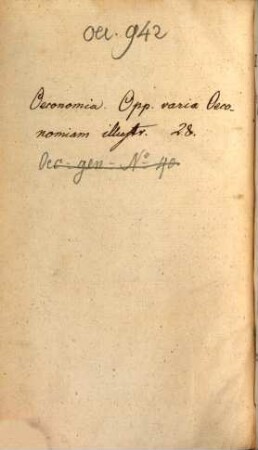 Oec. 942
Oeconomia. Opp. varia Oeco-
nomiam illustr. 28.
Oec. gen. No 40.